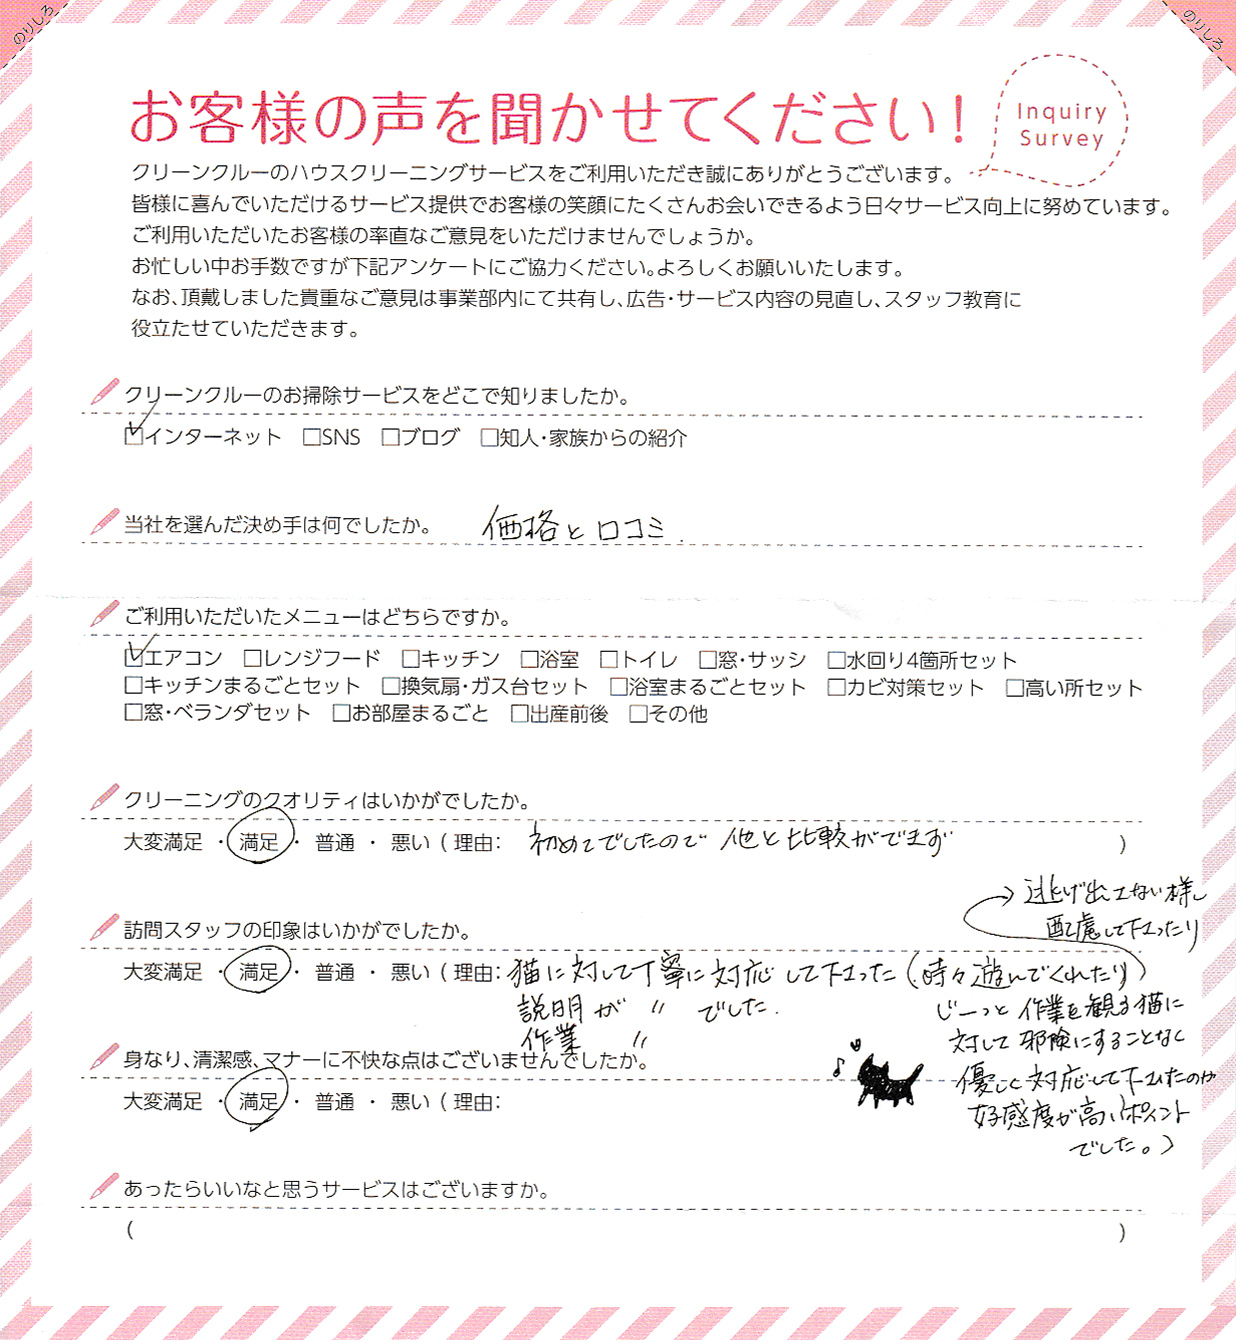 のりしろ
のりしろ
お客様の声を聞かせてください!
Inquiry
Survey
クリーンクルーのハウスクリーニングサービスをご利用いただき誠にありがとうございます。
皆様に喜んでいただけるサービス提供でお客様の笑顔にたくさんお会いできるよう日々サービス向上に努めています。
ご利用いただいたお客様の率直なご意見をいただけませんでしょうか。
お忙しい中お手数ですが下記アンケートにご協力ください。よろしくお願いいたします。
なお、頂戴しました貴重なご意見は事業部内にて共有し、広告・サービス内容の見直し、スタッフ教育に
役立たせていただきます。
クリーンクルーのお掃除サービスをどこで知りましたか。
☑インターネット □SNS □ブログ □知人・家族からの紹介
当社を選んだ決め手は何でしたか。 価格と口コミ.
ご利用いただいたメニューはどちらですか。
☑エアコン □レンジフード □キッチン □浴室 □トイレ □窓・サッシ □水回り4箇所セット
□キッチンまるごとセット □換気扇・ガス台セット □浴室まるごとセット □カビ対策セット □高い所セット
□窓・ベランダセット □お部屋まるごと □出産前後 □その他
クリーニングのクオリティはいかがでしたか。
大変満足 ・ 満足 ・ 普通 ・ 悪い ( 理由: 初めてでしたので 他と比較ができず )
訪問スタッフの印象はいかがでしたか。
大変満足 ・ 満足 ・ 普通 ・ 悪い ( 理由: 猫に対して丁寧に対応して下さった (時々遊んでくれたり)
→逃げ出さない様し
配慮して下さったり
説明が 〃 でした.
作業 〃
じーっと作業を観る猫に
対して邪険にすることなく
優しく対応して下さったのが
好感度が高いポイント
でした。)
身なり、清潔感、マナーに不快な点はございませんでしたか。
大変満足 ・ 満足 ・ 普通 ・ 悪い ( 理由:
あったらいいなと思うサービスはございますか。
( )